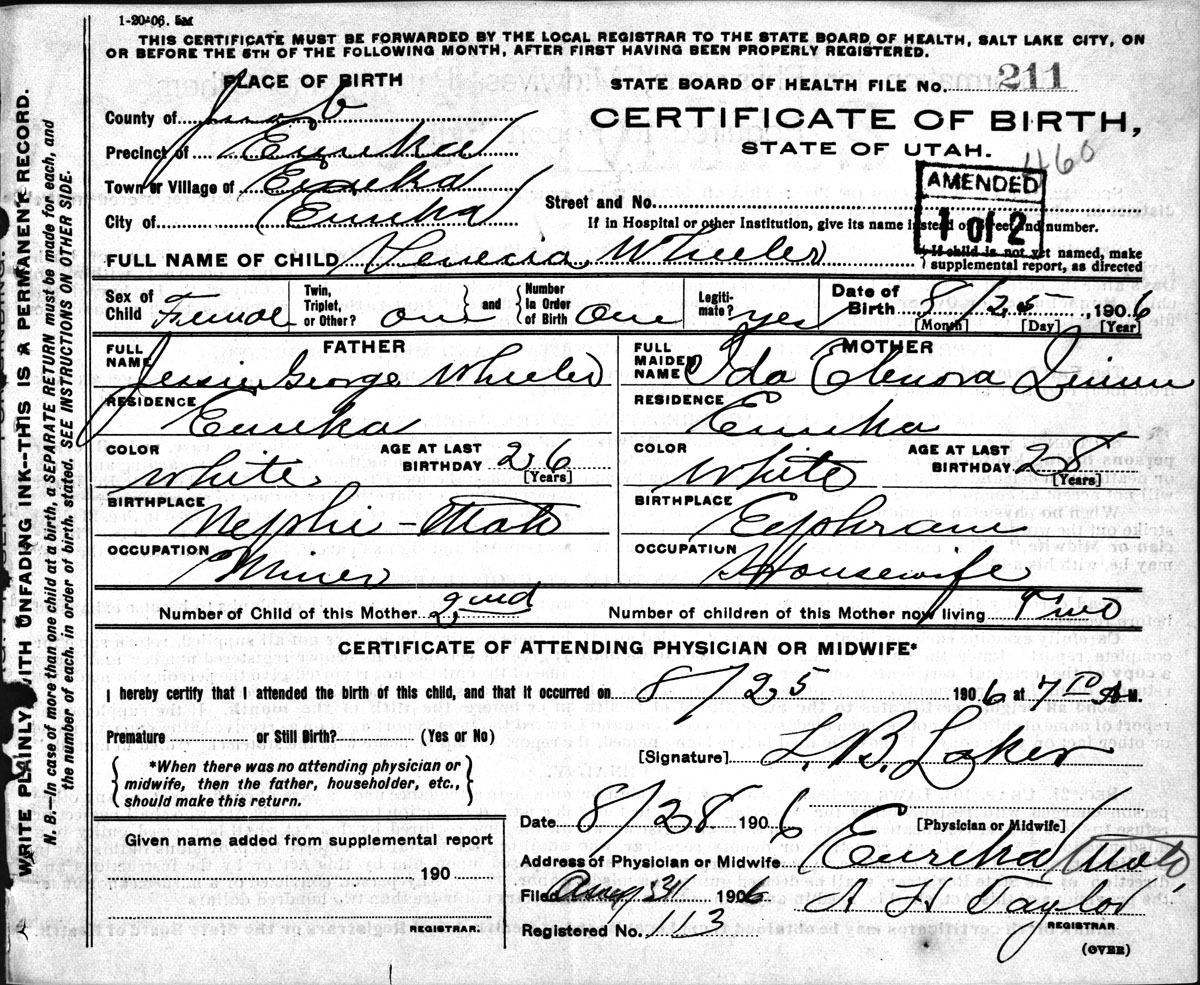 1-20-06. 5M
THIS CERTIFICATE MUST BE FORWARDED BY THE LOCAL REGISTRAR TO THE STATE BOARD OF HEALTH, SALT LAKE CITY, ON
OR BEFORE THE 5TH OF THE FOLLOWING MONTH, AFTER FIRST HAVING BEEN PROPERLY REGISTERED.
PLACE OF BIRTH
STATE BOARD OF HEALTH FILE No. 211
County of Juab
CERTIFICATE OF BIRTH,
Precinct of Eureka
STATE OF UTAH.
460
Town or Village of Eureka
AMENDED
1 of 2
City of Eureka
Street and No.
If in Hospital or other Institution, give its name instead of Street and number.
FULL NAME OF CHILD Wheeler
If child is not yet named, make
supplemental report, as directed
Sex of Child Female
Twin, Triplet, or Other? one and Number in Order of Birth One
Legiti-mate? yes
Date of Birth 8/25, 1906
[Month] [Day] [Year]
FATHER
MOTHER
FULL NAME Jessie George Wheeler
FULL MAIDEN NAME Ida Elenora
RESIDENCE Eureka
RESIDENCE Eureka
COLOR White
AGE AT LAST BIRTHDAY 26 [Years]
COLOR White
AGE AT LAST BIRTHDAY 28 [Years]
BIRTHPLACE Nephi - Utah
BIRTHPLACE Ephraim
OCCUPATION Miner
OCCUPATION Housewife
Number of Child of this Mother 2nd
Number of children of this Mother now living Two
CERTIFICATE OF ATTENDING PHYSICIAN OR MIDWIFE*
I hereby certify that I attended the birth of this child, and that it occurred on 8/25 1906 at 7 M.
Premature or Still Birth? (Yes or No)
[Signature] L. B. Laker
*When there was no attending physician or
midwife, then the father, householder, etc.,
should make this return.
Date 8/28 1906
[Physician or Midwife]
Given name added from supplemental report
190
REGISTRAR.
Address of Physician or Midwife Eureka Utah
Filed Aug 31 1906 A H Taylor
REGISTRAR
Registered No. 113
(OVER)
WRITE PLAINLY WITH UNFADING INK--THIS IS A PERMANENT RECORD.
N. B.--In case of more than one child at a birth, a SEPARATE RETURN must be made for each, and
the number of each, in order of birth, stated. SEE INSTRUCTIONS ON OTHER SIDE.